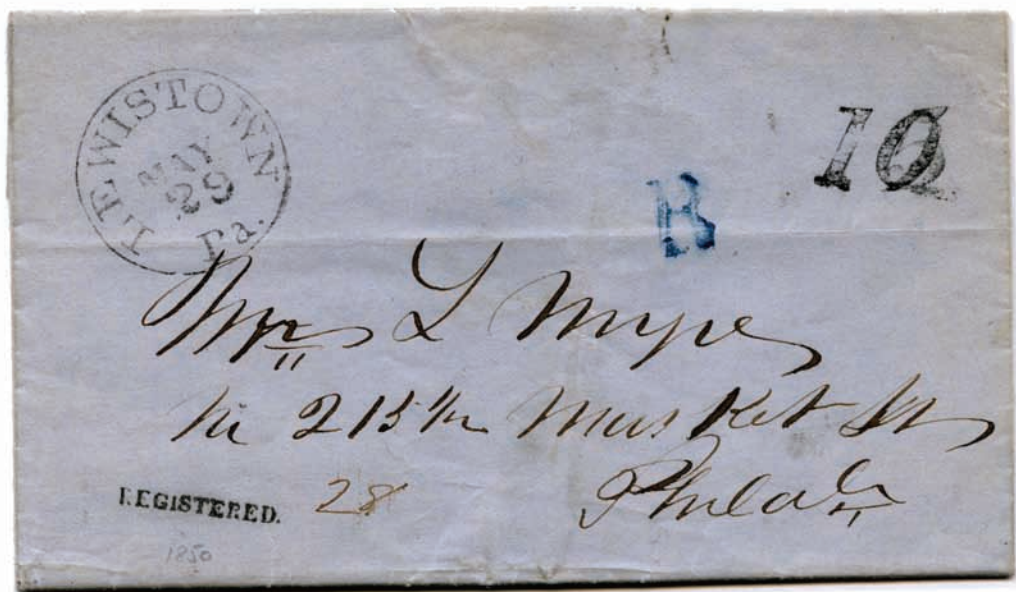 LEWISTOWN
MAY
29
Pa.
10
R
L
No 215 1/2 Market St
Philada
REGISTERED. 28
1850